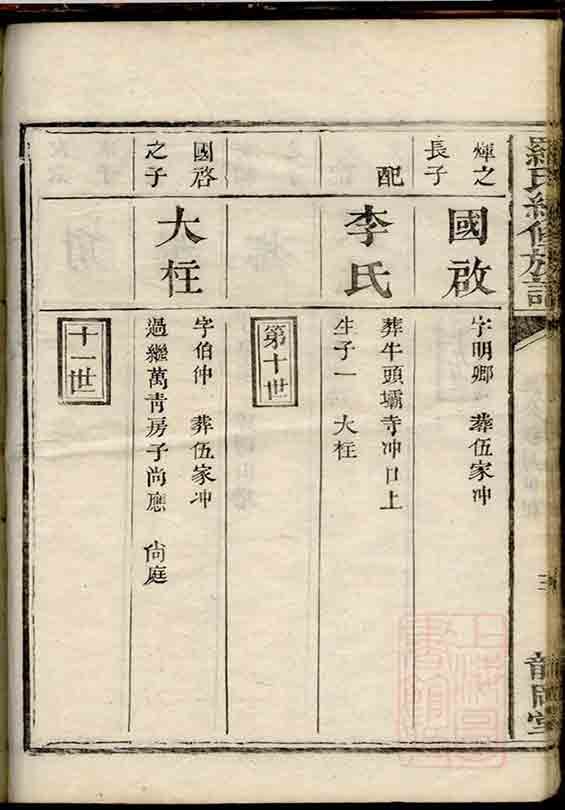 羅氏續修族譜
三
煇之
長子
國啟
字明卿 葬伍家冲
配
李氏
葬牛頭壩寺冲口上
生子一 大柱
第十世
國啓
之子
大柱
字伯仲 葬伍家冲
過繼萬青房子尚應 尙庭
十一世
上海圖
書館藏